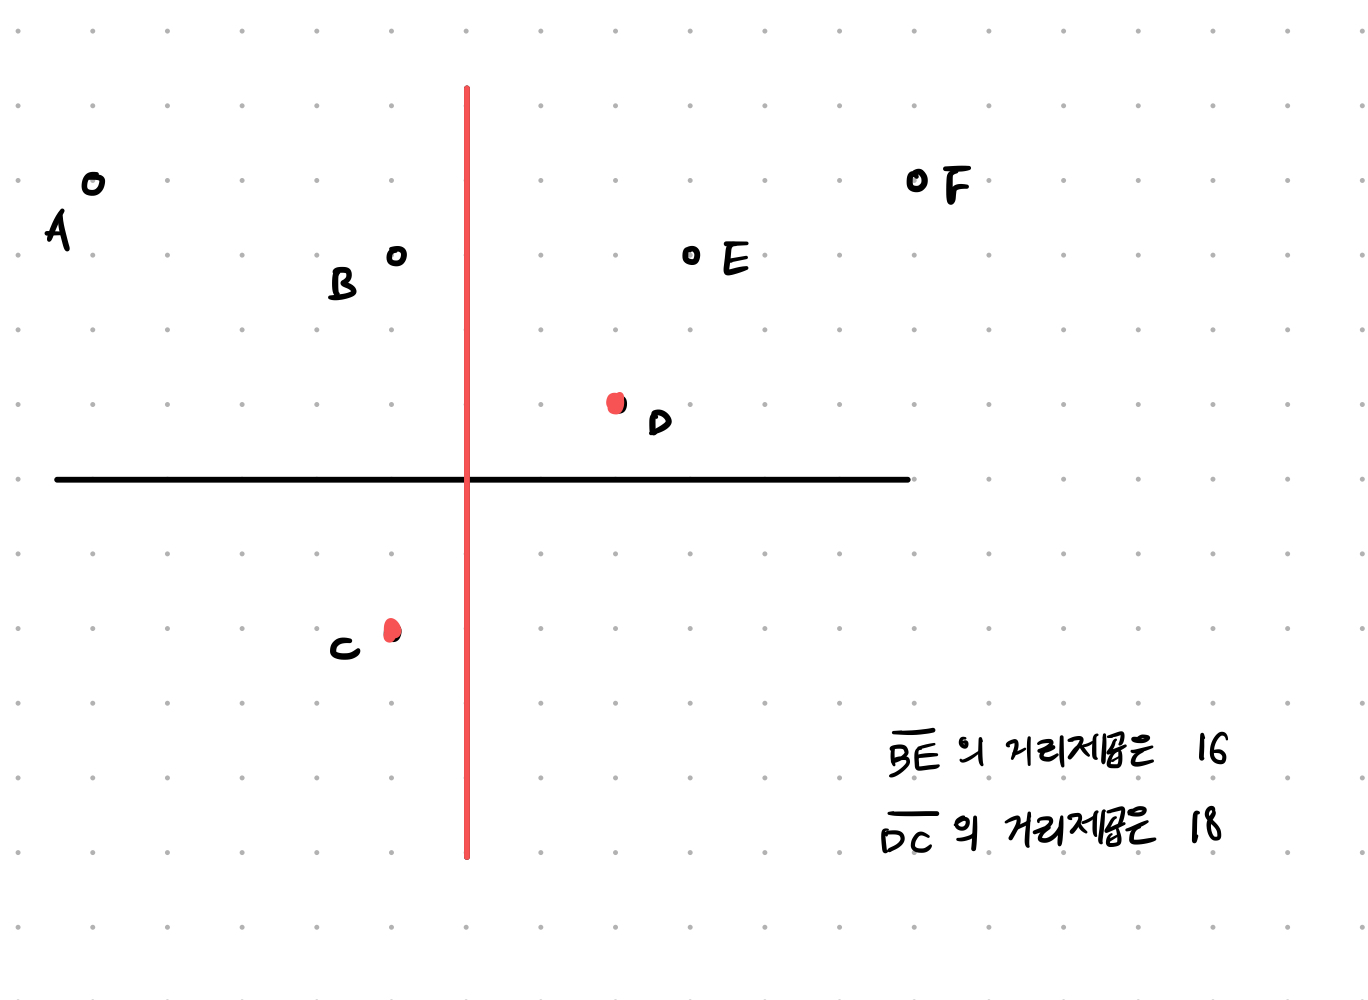 A
F
B
E
D
C
BE의 거리제곱은 16
DC의 거리제곱은 18